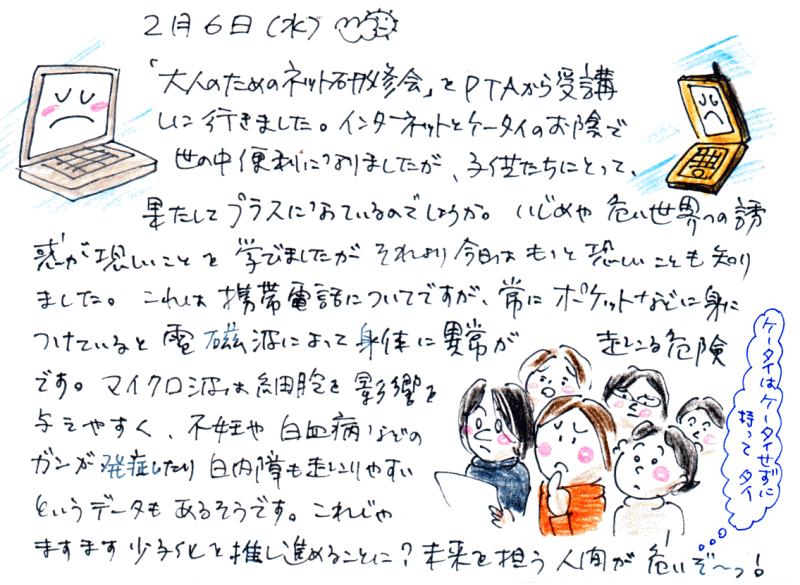 2月6日(水)
「大人のためのネット研修会」とPTAから受講
しに行きました。インターネットとケータイのお陰で
世の中便利になりましたが、子供たちにとって、
果たしてプラスになっているのでしょうか。いじめや危い世界への誘
惑が恐しいことを学びましたがそれより今日はもっと恐しいことも知り
ました。これは携帯電話についてですが、常にポケットなどに身に
つけていると電磁波によって身体に異常が起こる危険
です。マイクロ波は細胞を影響を
与えやすく、不妊や白血病などの
ガンが発症したり白内障も起こりやすい
というデータもあるそうです。これじゃ
ますます少子化を推し進めることに?未来を担う人間が危いぞ〜っ!
ケータイはケータイせずに
持って タイ